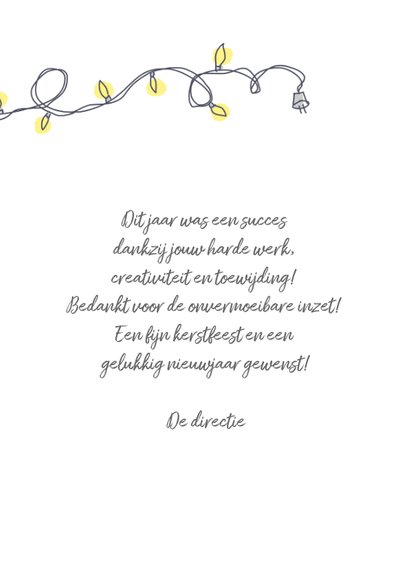 Dit jaar was een succes
dankzij jouw harde werk,
creativiteit en toewijding!
Bedankt voor de onvermoeibare inzet!
Een fijn kerstfeest en een
gelukkig nieuwjaar gewenst!
De directie